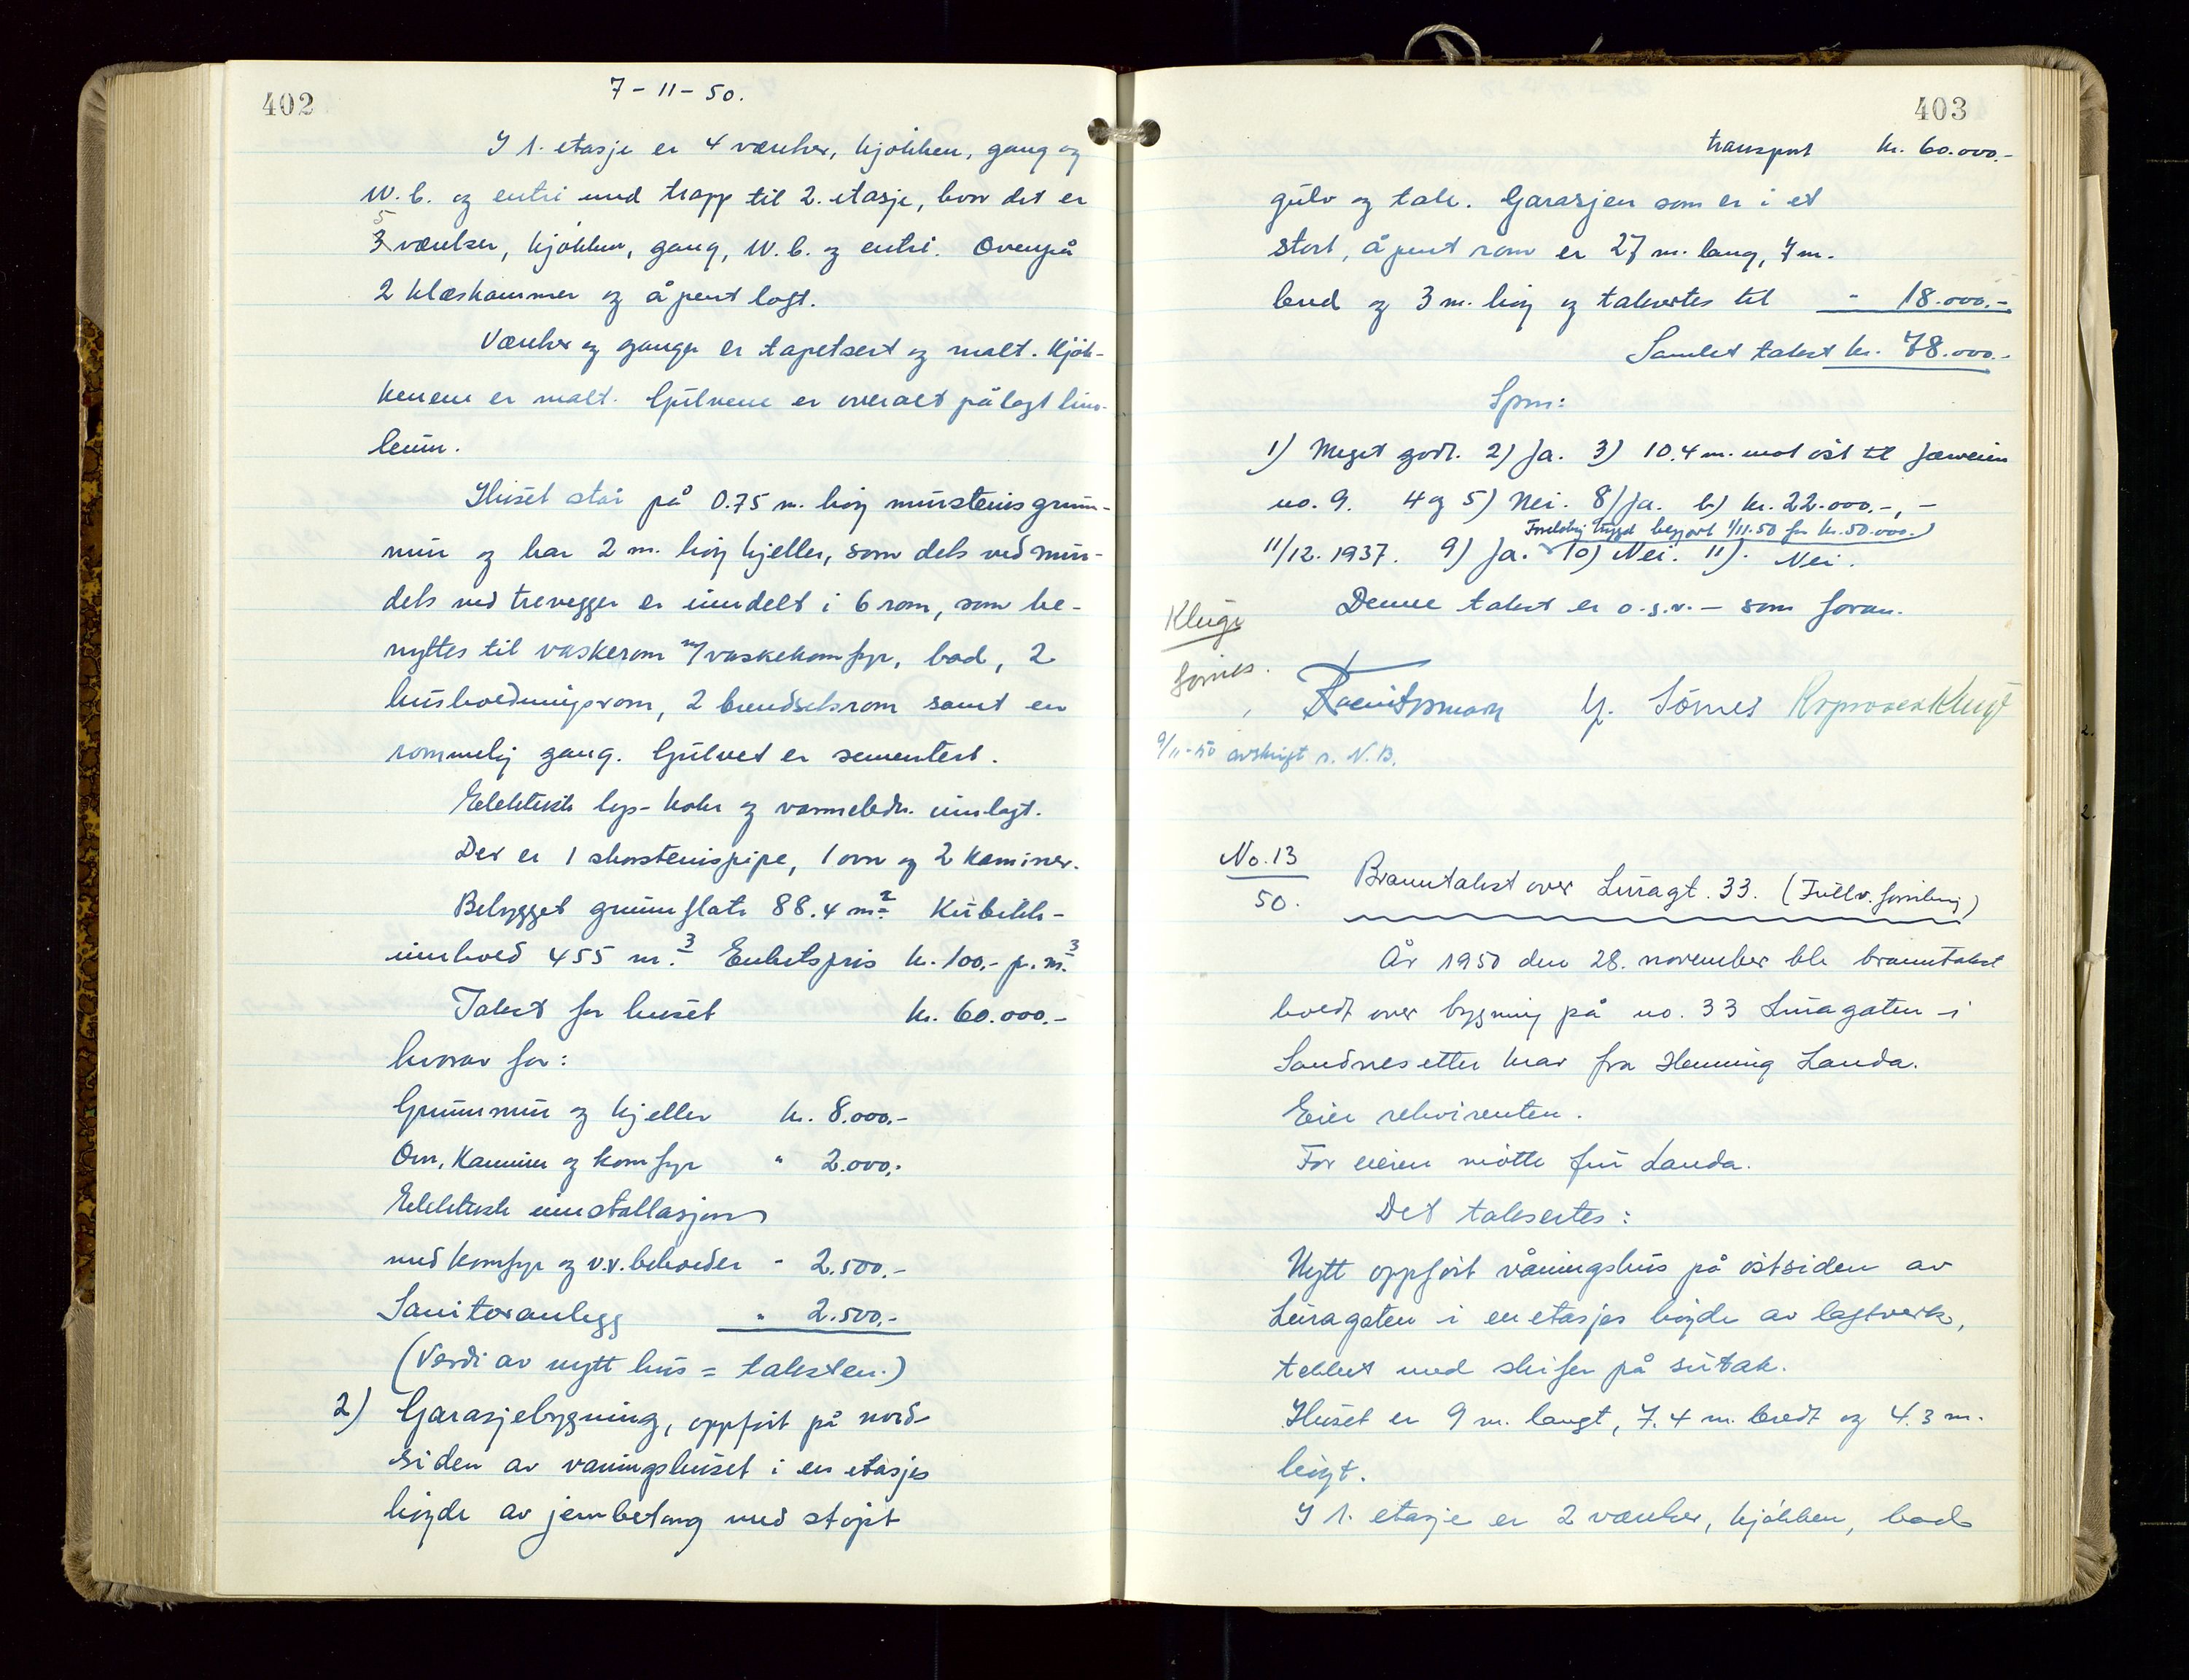 402
7-11-50.
I 1. etasje er 4 værelser, kjøkken, gang og
W.C. og entré med trapp til 2. etasje, hvor det er
5 værelser, kjøkken, gang, W.C. og entré. Ovenpå
2 klæskammer og åpent loft.
Værelser og ganger er tapetsert og malt. Kjøk-
kenene er malt. Gulvene er overalt pålagt lino-
leum.
Huset står på 0.75 m. høy murstensgrun-
mur og har 2 m. høy kjeller, som dels ved mur-
dels ved trevegger er inndelt i 6 rom, som be-
nyttes til vaskerom m/vaskekomfyr, bad, 2
husholdningsrom, 2 brendselsrom samt en
rommelig gang. Gulvet er sementert.
Elektrisk lys- koke og varmeledn. innlagt.
Der er 1 skorstenspipe, 1 ovn og 2 kaminer.
Bebygget grunnflate 88.4 m.2 Kubikk-
innhold 455 m.3 Enhetspris kr. 100.- p. m.3
Takst for huset kr. 60.000.-
hvorav for:
Grunnmur og kjeller kr. 8.000.-
Ovn, Kaminer og komfyr " 2.000.-
Elektrisk installasjon
med komfyr og v.v.beholder " 2.500.-
Sanitæranlegg " 2.500.-
(Verdi av nytt hus = taksten.)
2) Garasjebygning, oppført på nord-
siden av våningshuset i en etasjes
høyde av jernbetong med støpt
403
transport kr. 60.000.-
gulv og tak. Garasjen som er i et
stort, åpent rom er 27 m. lang, 7 m.
bred og 3 m. høy og takseres til " 18.000.-
Samlet takst kr. 78.000.-
Spm:
1) Meget godt. 2) Ja. 3) 10.4 m. mot øst til Jærveien
no. 9. 4 og 5) Nei. 8) Ja. b) kr. 22.000.-, -
Foreløbig trygd begjært 1/11.50 for kr. 50.000.)
11/12. 1937. 9) Ja. 10) Nei. 11). Nei.
Denne takst er o.s.v. - som foran.
Kluge
Sørnes.
G. Sörnes Kluge
9/11-50 avskrift s. N.B.
No. 13
50.
Branntakst over Luragt. 33. (Fullv. forsikring)
År 1950 den 28. november ble branntakst
holdt over bygning på no. 33 Luragaten i
Sandnes etter krav fra Henning Landa.
Eier rekvirenten.
For eieren møtte fru Landa.
Det takseres:
Nytt oppført våningshus på østsiden av
Luragaten i en etasjes høyde av laftverk,
tekket med skifer på sutak.
Huset er 9 m. langt, 7.4 m. bredt og 4.3 m.
høyt.
I 1. etasje er 2 værelser, kjøkken, bad